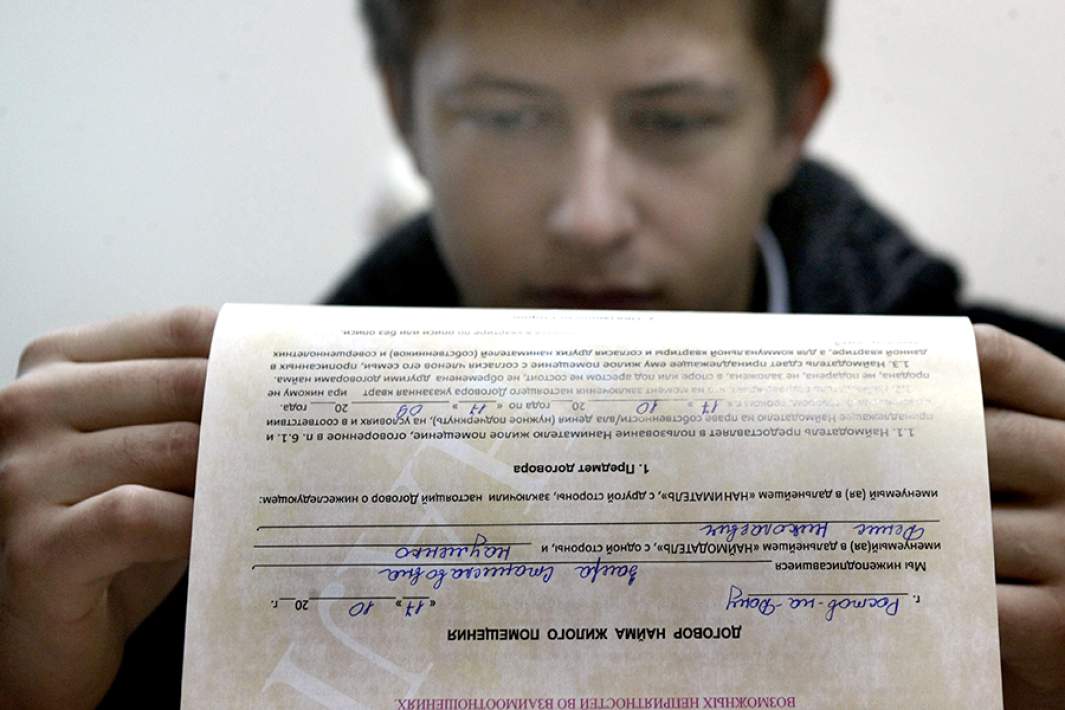 ВОЗМОЖНЫХ НЕПРИЯТНОСТЕЙ ВО ВЗАИМООТНОШЕНИЯХ.
ДОГОВОР НАЙМА ЖИЛОГО ПОМЕЩЕНИЯ
г. Ростов-на-Дону «17» 10 20 г.
Мы нижеподписавшиеся Заира Станиславовна
Науменко
именуемый(ая) в дальнейшем «НАЙМОДАТЕЛЬ», с одной стороны, и
Николаевич
именуемый (ая) в дальнейшем «НАНИМАТЕЛЬ», с другой стороны, заключили настоящий Договор о нижеследующем:
1. Предмет договора
1.1. Наймодатель предоставляет в пользование Нанимателю жилое помещение, оговоренное в п. 6.1. и
принадлежащее Наймодателю на праве собственности/вла дения (нужное подчеркнуть), на условиях и в соответствии
«17» 10 20 года по «17» 09 20 года.
на момент заключения настоящего Договора указанная кварт ира никому не
продана, не подарена, не заложена, в споре или под арестом не состоит, не обременена другими договорами найма.
1.3. Наймодатель сдает принадлежащее ему жилое помещение с согласия членов его семьи, прописанных в
данной квартире, а для коммунальной квартиры и согласия других нанимателей (собственников) и совершеннолетних
в квартире по описи или без описи.